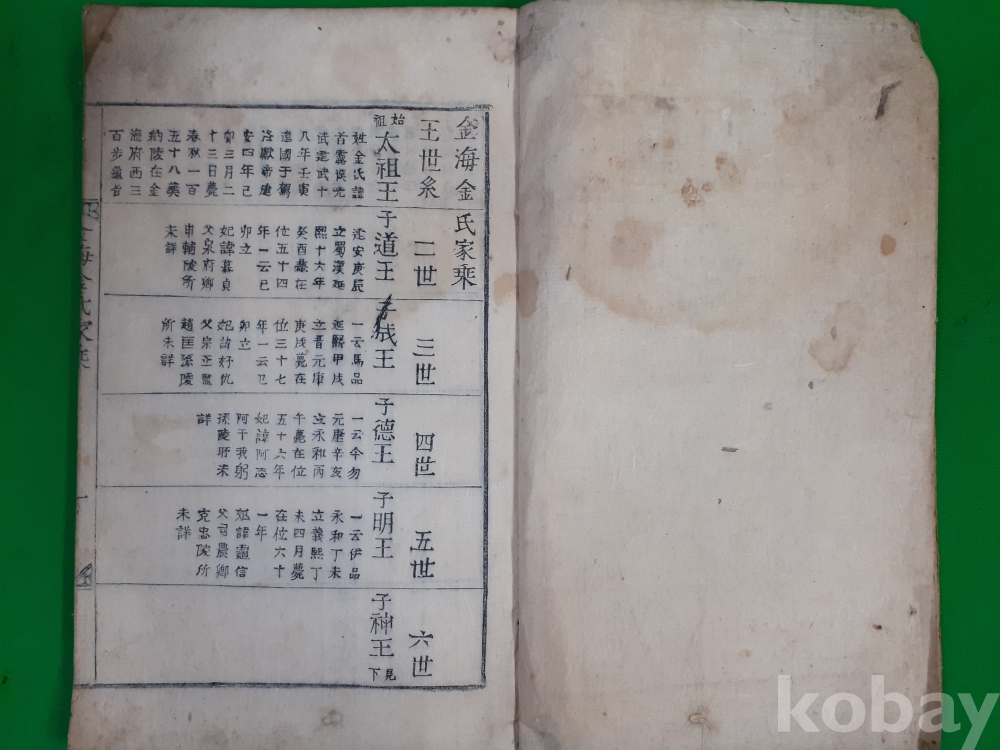 金海金氏家乘
王世系
始祖
太祖王
姓金氏諱
首露漢光
武建武十
八年壬寅
建國于駕
洛獻帝建
安四年己
卯三月二
十三日薨
春秋一百
五十八葬
納陵在金
海府西三
百步龜首
二世
子道王
建安庚辰
立蜀漢延
熙十六年
癸酉薨在
位五十四
年一云己
卯立
妃諱慕貞
父泉府卿
申輔陵所
未詳
三世
子成王
一云馬品
延熙甲戌
立晋元康
庚戌薨在
位三十七
年一云己
卯立
妃諱好仇
父宗正監
趙匡孫陵
所未詳
四世
子德王
一云今勿
元康辛亥
立永和丙
午薨在位
五十六年
妃諱阿志
阿干我躬
孫陵所未
詳
五世
子明王
一云伊品
永和丁未
立義熙丁
未四月薨
在位六十
一年
妃諱靈信
父司農卿
克忠陵所
未詳
六世
子神王
見下
金海金氏家乘
一
kobay